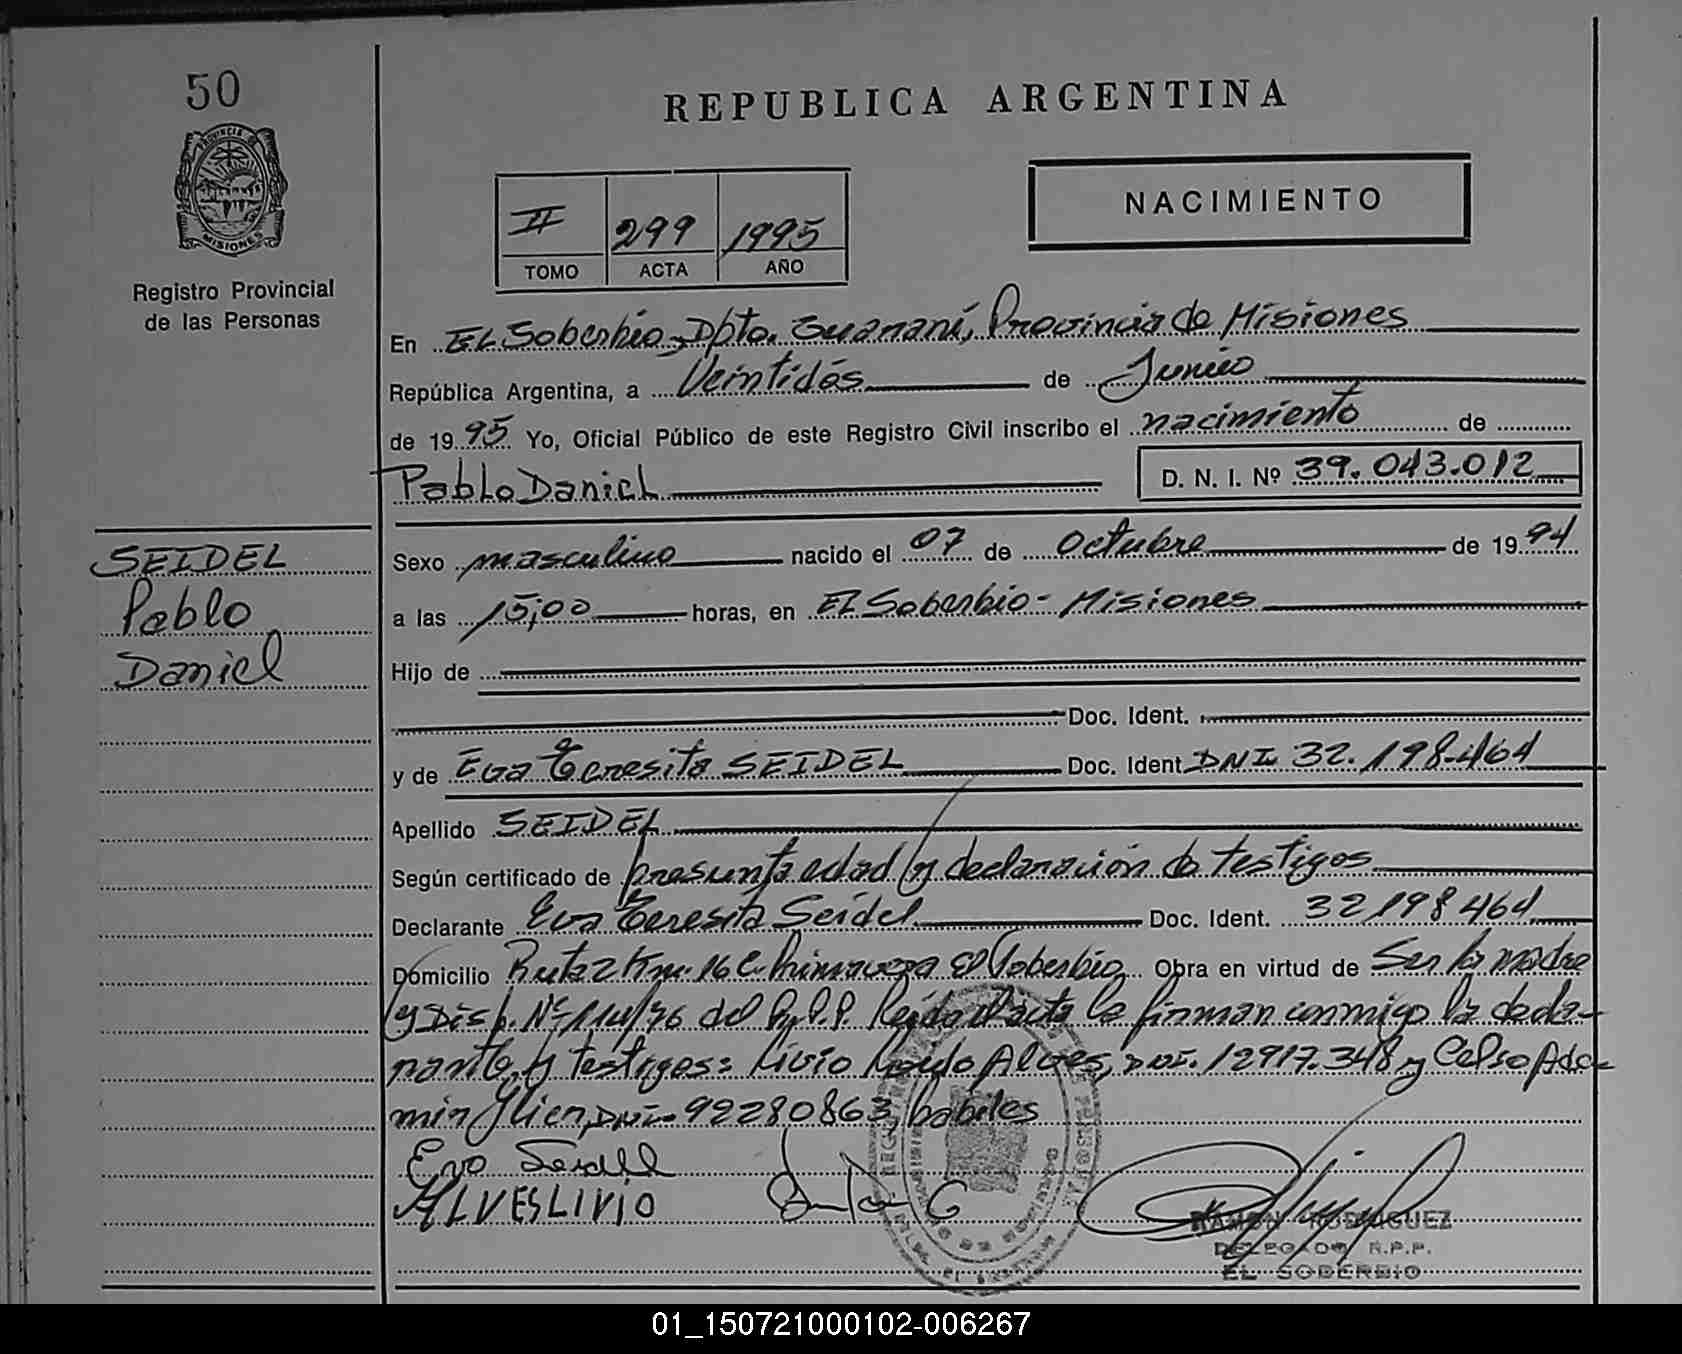 50
REPUBLICA ARGENTINA
PROVINCIA DE MISIONES
Registro Provincial
de las Personas
NACIMIENTO
II 299 1995
TOMO ACTA AÑO
En El Soberbio, Dpto. Guaraní, Provincia de Misiones
República Argentina, a Veintidós de Junio
de 1995 Yo, Oficial Público de este Registro Civil inscribo el nacimiento de
Pablo Daniel D. N. I. Nº 39.043.012
SEIDEL
Pablo
Daniel
Sexo masculino nacido el 07 de Octubre de 1994
a las 15,00 horas, en El Soberbio - Misiones
Hijo de
Doc. Ident.
y de Eva Teresita SEIDEL Doc. Ident. DNI 32.198.464
Apellido SEIDEL
Según certificado de presunta edad y declaración de testigos
Declarante Eva Teresita Seidel Doc. Ident. 32198464
Domicilio Ruta 2 Km. 16 C. Primavera El Soberbio Obra en virtud de Ser la madre
y Disp. Nº del R.P.P. Leída el acta la firman conmigo la decla-
rante y testigos: Livio Alves, DNI. 12917.348 y Celso
DNI 92280863, hábiles
Eva Seidel
ALVES LIVIO
RAMON RODRIGUEZ
DELEGADO R.P.P.
EL SOBERBIO
01_150721000102-006267